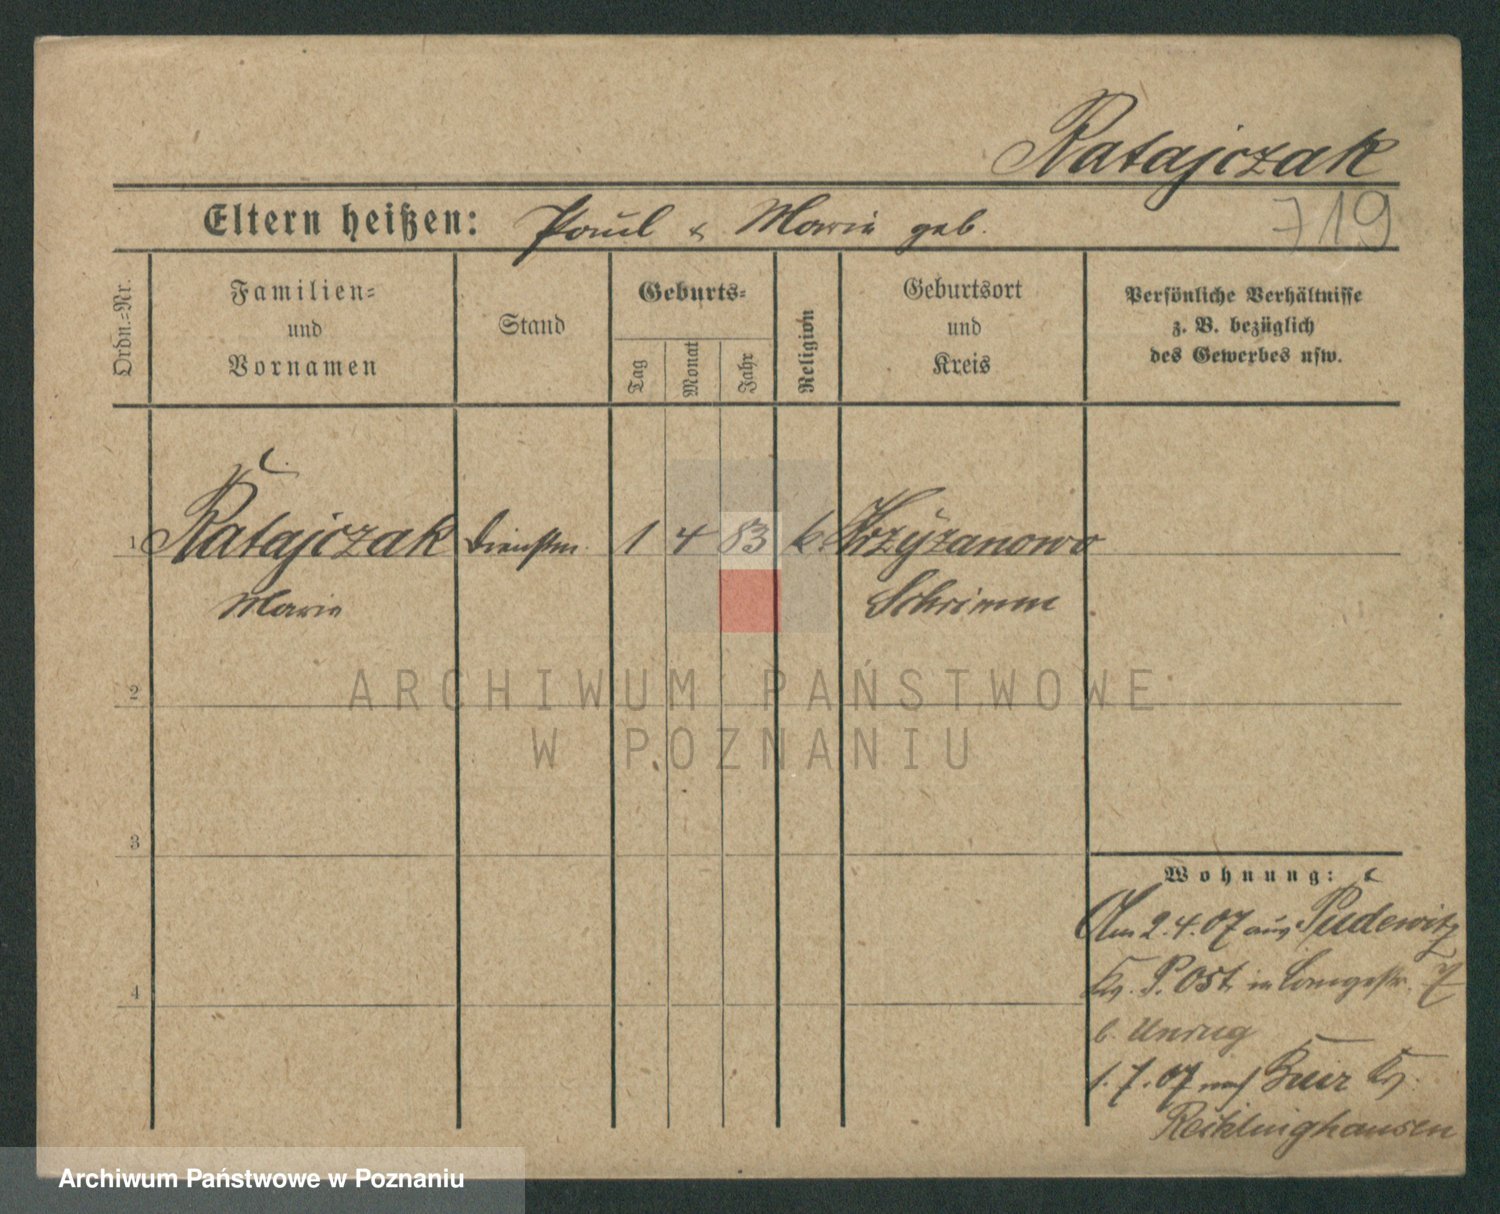 Ratajczak
Eltern heißen: Paul & Marie geb.
719
Ordn.-Nr.
Familien-
und
Vornamen
Stand
Geburts-
Tag
Monat
Jahr
Religion
Geburtsort
und
Kreis
Persönliche Verhältnisse
z. B. bezüglich
des Gewerbes usw.
1 Ratajczak Dienstm. 1 4 83 k. Krzyżanowo
Marie Schrimm
2
ARCHIWUM PAŃSTWOWE
W POZNANIU
3
4
Wohnung:
Am 2.4.07 aus Pudewitz
Kr. P. Ost in Langestr. 7
b. Unrug
1.7.07 nach Buer Kr.
Recklinghausen
Archiwum Państwowe w Poznaniu